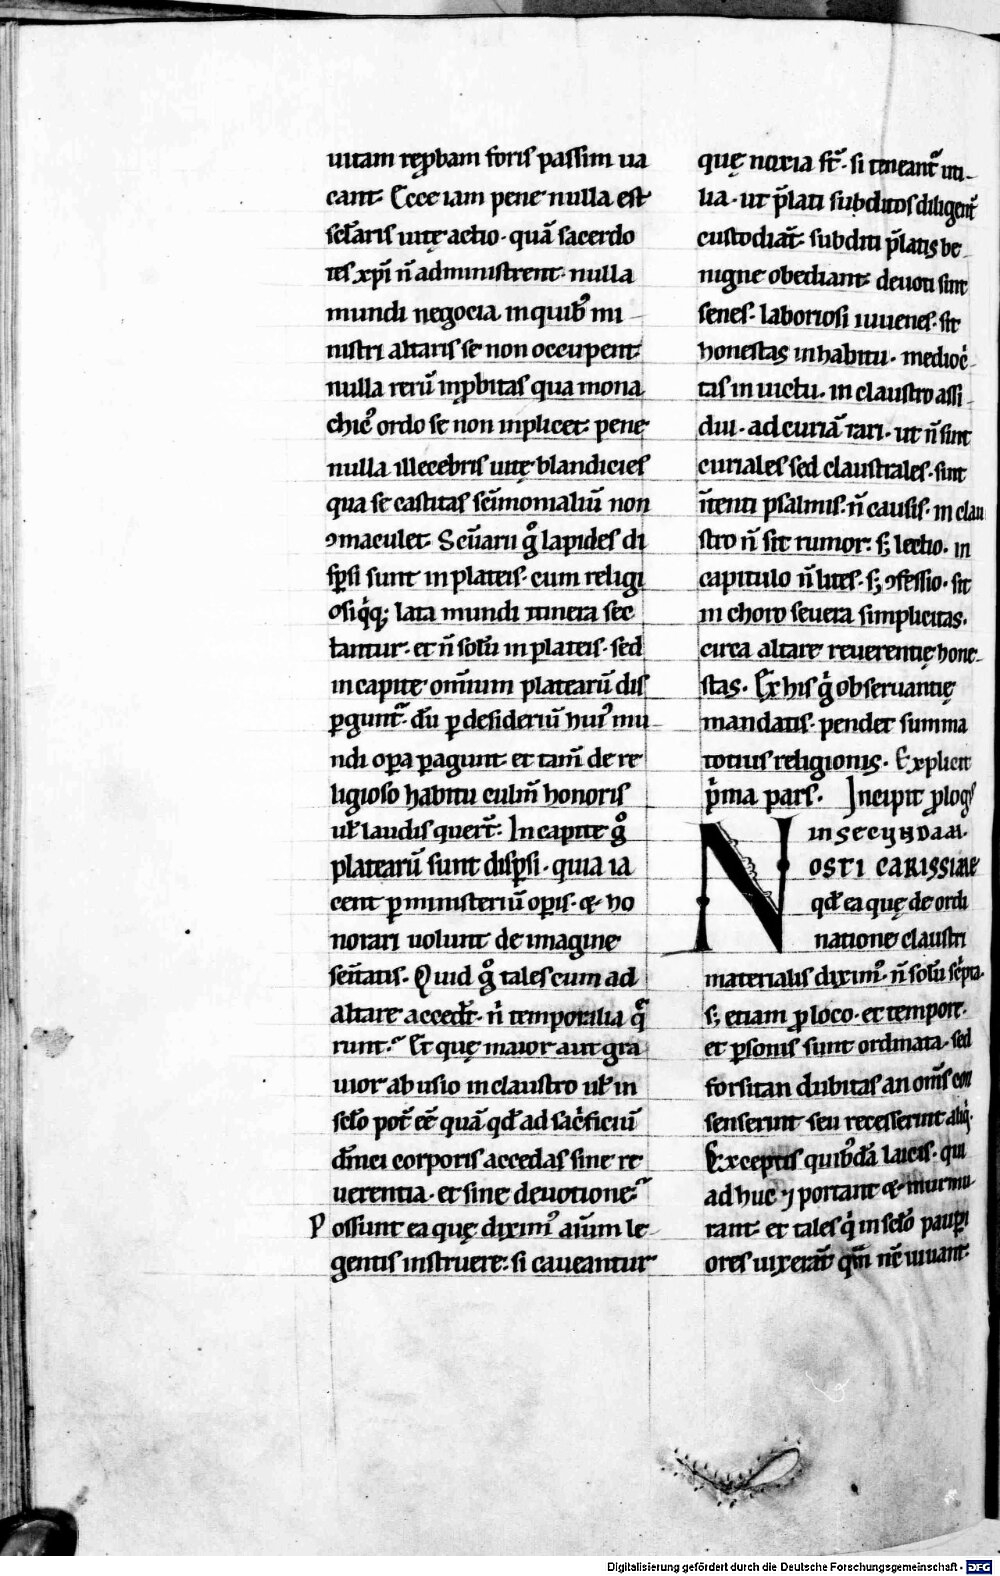 uitam rep̱bam foris passim ua
cant. Ecce iam pene nulla est
sc̄laris uitę actio. quā sacerdo
tes xp̄i n̄ administrent. nulla
mundi negocia in quib᷒ mi
nistri altaris se non occupent.
nulla rerū inp̱bitas qua mona
chic᷒ ordo se non inplicet. pene
nulla illecebris uitę blandicies
qua se castitas sc̄imonialiū non
ꝯmaculet. Sc̄uarii gͦ lapides di
sp̱si sunt in plateis. cum religi
osiq̇q; lata mundi itinera sec
tantur. et n̄ solū in plateis. sed
in capite om̄ium platearū dis
ꝑgunt᷑. dū ꝑ desideriū hui᷒ mu
ndi oꝑa ꝑagunt. et tam̄ de re
ligioso habitu culm̄ honoris
ut̄ laudis quert᷑. In capite gͦ
platearū sunt disp̱si. quia ia
cent ꝑ ministeriū oꝑis. & ho
norari uolunt de imagine
sc̄itatis. Quid gͦ tales cum ad
altare accedt̄. n̄ temporalia q̄
runt. Et quę maior aut gra
uior abusio in claustro ut̄ in
sc̄lo pot̄ ēē quā qđ ad sac̍ficiū
dn̄ici corporis accedas sine re
uerentia. et sine deuotione.
Possunt ea quę dixim᷒ aīum le
gentis instruere. si caueantur
quę noxia st̄. si teneant᷑ uti
lia. ut p̄lati subditos diligent᷑
custodiāt. subditi p̄latis be
nigne obediant. deuoti sint
senes. laboriosi iuuenes. sit
honestas in habitu. medioc̍
tas in uictu. in claustro assi
dui. ad curiā rari. ut n̄ sint
curiales sed claustrales. sint
īntenti psalmis. n̄ causis. in clau
stro n̄ sit rumor. s; lectio. in
capitulo n̄ lites. s; ꝯfessio. sit
in choro seuera simplicitas.
circa altare reuerentię hone
stas. Ex his g̍ obseruantię
mandatis. pendet summa
totius religionis. Explicit
p̍ma pars. Incipit ꝓlog᷒
in secundam.
NOSTI CARISSIME
qđ ea quę de ordi
natione claustri
materialis dixim᷒. n̄ solū sc̄pta.
s; etiam ꝓ loco. et tempore.
et ꝑsonis sunt ordinata. sed
forsitan dubitas an om̄s con
senserint seu recesserint aliq̍.
Exceptis quib᷒dā laicis. qui
ad huc ⁊ portant & murmu
rant. et tales q̍ in sc̄lo pauꝑi
ores uixerāt qm̄ nc̄ uiuant.
Digitalisierung gefördert durch die Deutsche Forschungsgemeinschaft - DFG